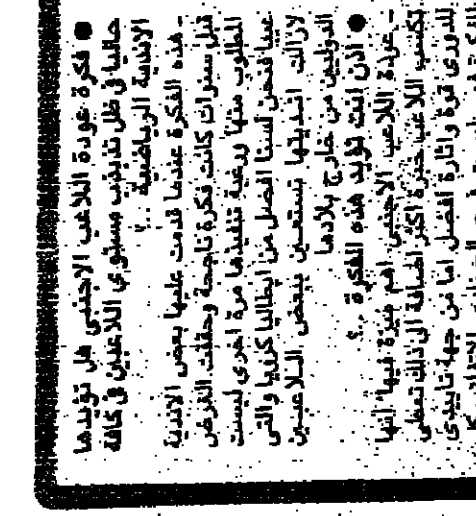 ● فكرة عودة اللاعب الاجنبي هل تؤيدها
حاليا في ظل تذبذب مستوي اللاعبين في كافة
الاندية الرياضية ..؟
- هذه الفكرة عندما قدمت عليها بعض الاندية
قبل سنوات كانت فكرة ناجحة وحققت الغرض
المطلوب منها ورغبة تنفيذها مرة اخرى ليست
عيبا فنحن لسنا افضل من ايطاليا كرويا والتي
لازالت انديتها تستعين ببعض اللاعبين
الدوليين من خارج بلادها
● اذن انت تؤيد هذه الفكرة ..؟
- عودة اللاعب الاجنبي اهم ميزة فيها انها
تكسب اللاعب خبرة اكثر اضافة الى ذلك تعطي
للدوري قوة واثارة افضل اما من جهة تاييدي